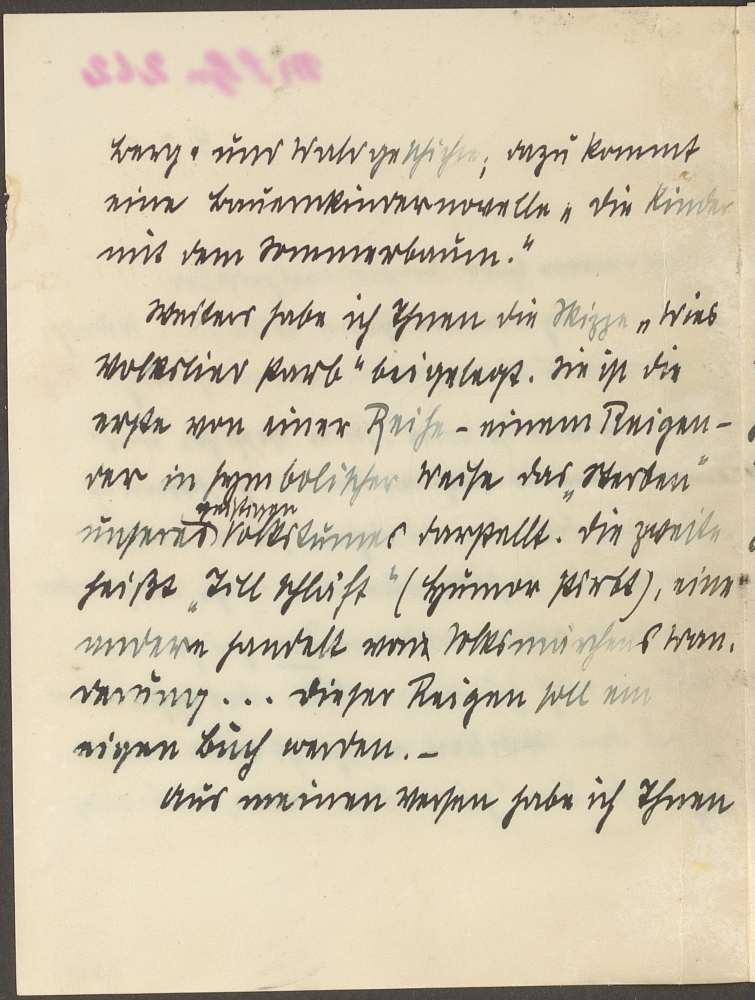 Berg- und Waldgeschichte; dazu kommt
eine Bauernkindernovelle „Die Kinder
mit dem Sommerbaum."
Weiters habe ich Ihnen die Skizze „Wies
Volkslied starb" beigelegt. Sie ist die
erste von einer Reihe – einem Reigen –
der in symbolischer Weise das „Sterben"
geistigen
unseres Volkstumes darstellt. Die zweite
heißt „Till schläft" (Humor stirbt), eine
andere handelt von Volksmärchens Wan-
derung... Dieser Reigen soll ein
eigen Buch werden. –
Aus meinen Versen habe ich Ihnen